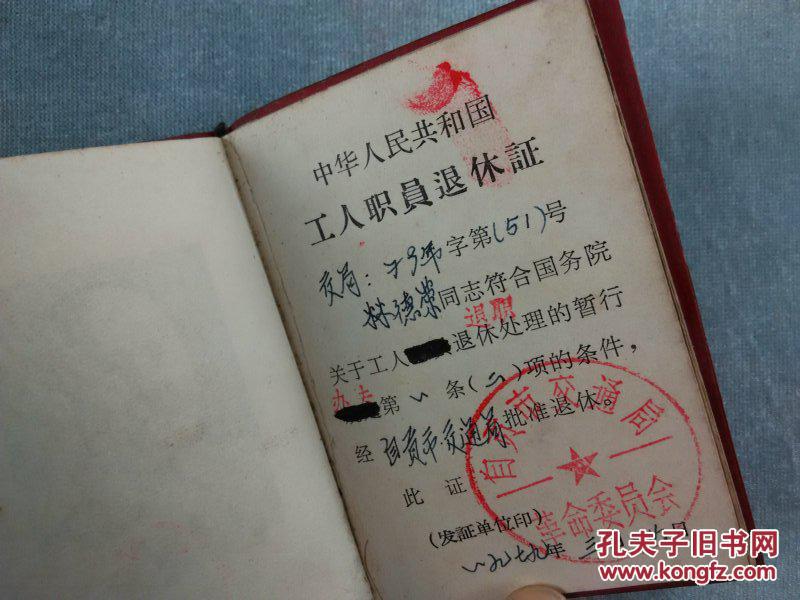 中华人民共和国
工人职員退休証
交局：字第(51)号
林德荣同志符合国务院
退职
关于工人退休处理的暂行
办法
第一条(二)项的条件，
经自贡市交通局批准退休。
此证
(发証单位印)
一九七九年三月日
自贡市交通局
革命委员会
孔夫子旧书网
www.kongfz.com